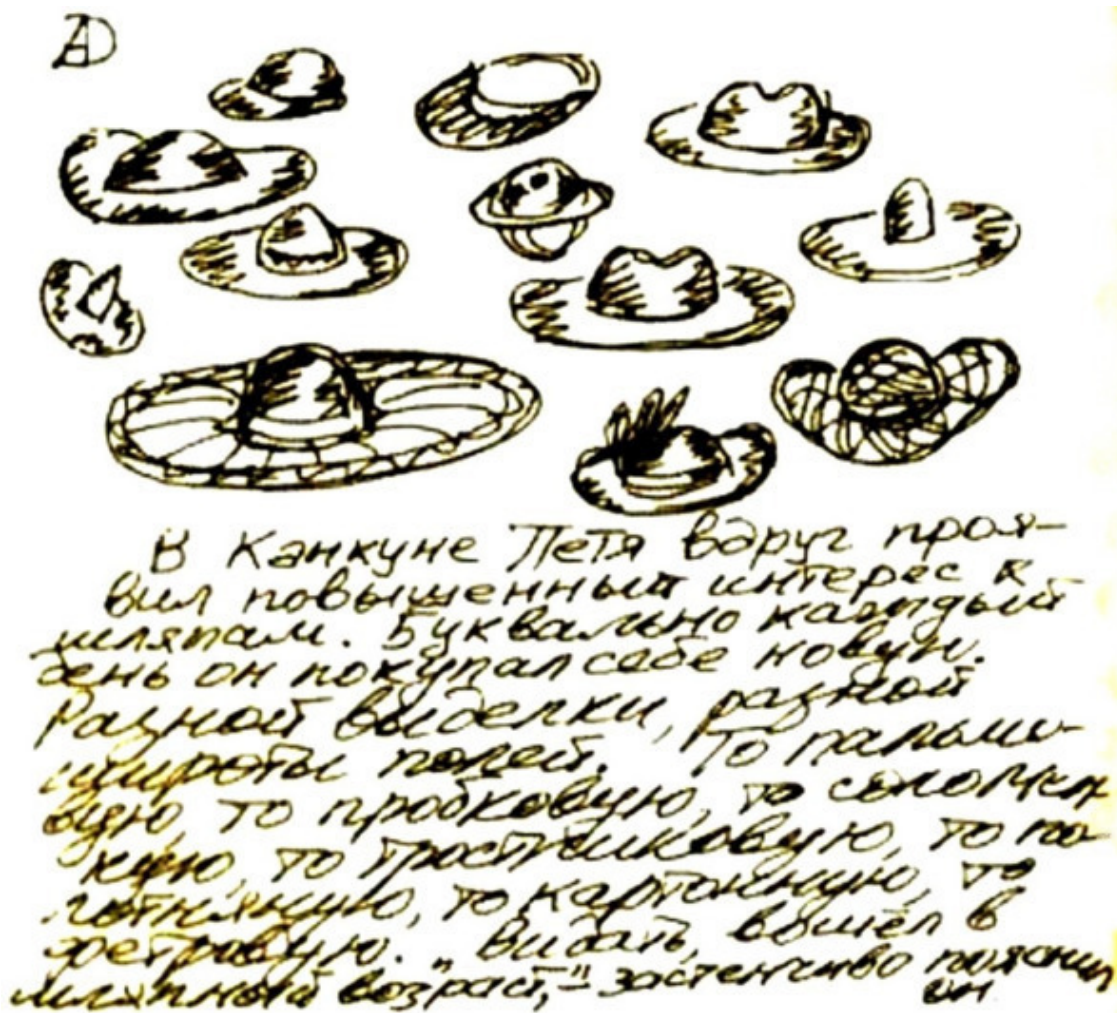 В Канкуне Петя вдруг проя-
вил повышенный интерес к
шляпам. Буквально каждый
день он покупал себе новую.
Разной выделки, разной
широты полей. То пальмо-
вую, то пробковую, то соломен
ную, то тростниковую, то по-
лотняную, то картонную, то
фетровую. „Видать, вошёл в
шляпный возраст,"- застенчиво пояснил
он